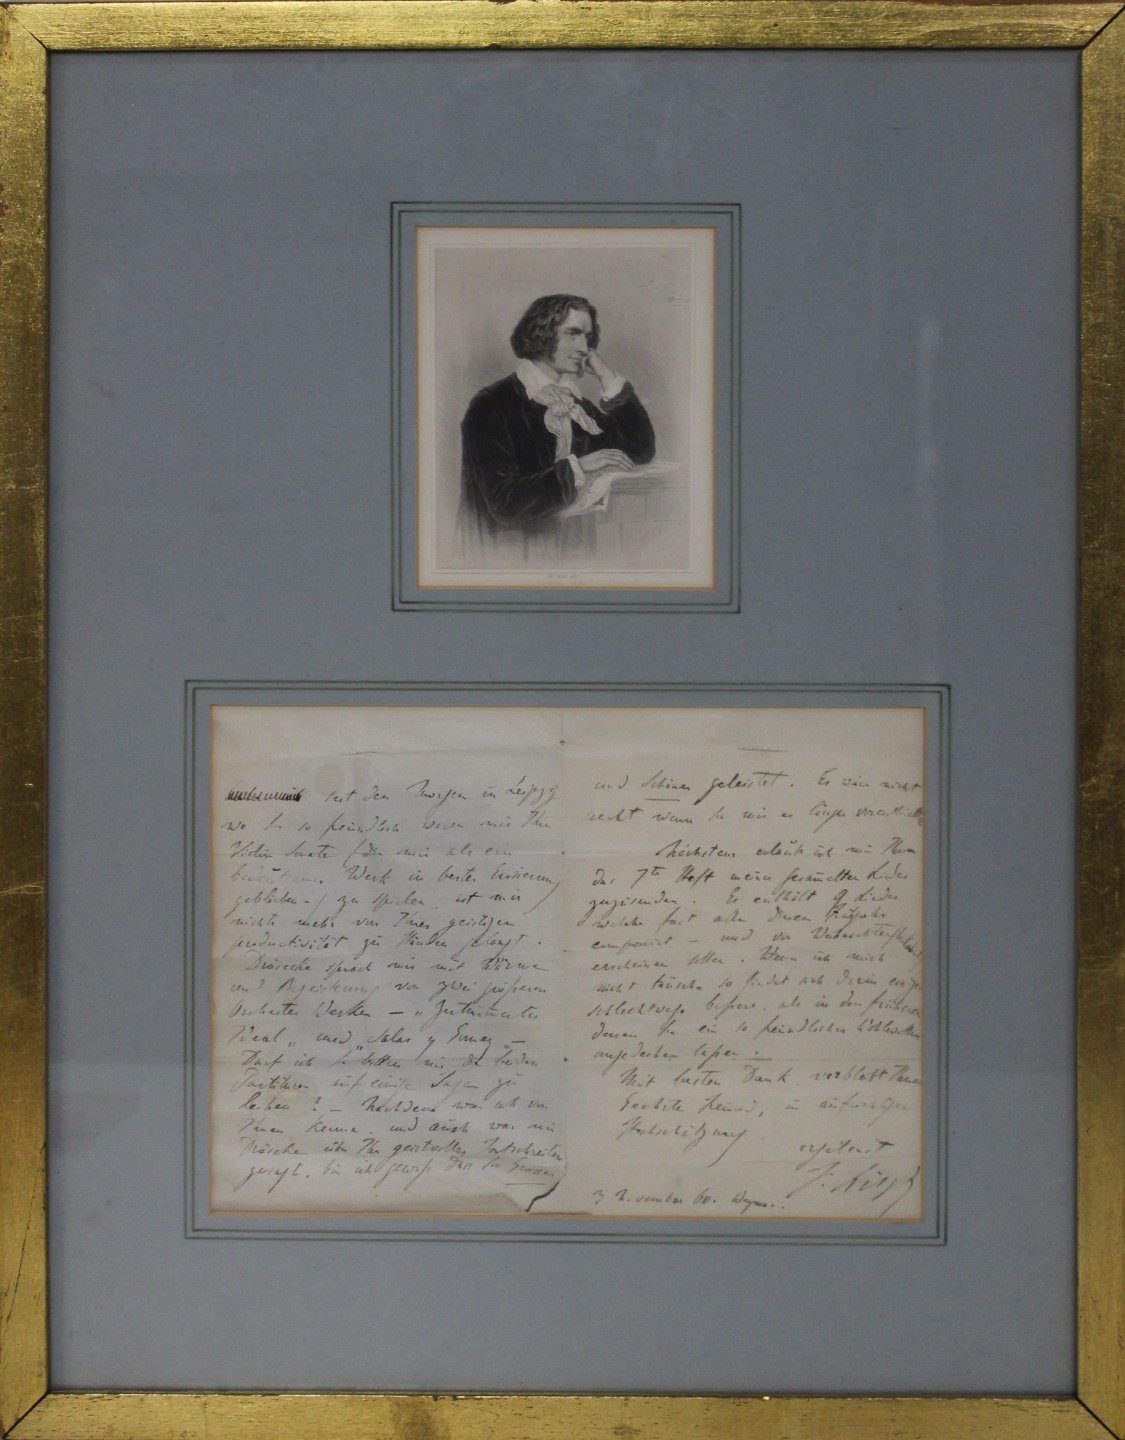 seit den Morgen in Leipzig
wo Sie so freundlich waren mir Ihre
Violin Sonate (die mir als ein
Werk in bester Erinnerung
geblieben –) zu spielen, ist mir
nichts mehr von Ihrer geistigen
productivität zu Händen gelangt.
Dräseke sprach mir mit Wärme
und Begeisterung von zwei größeren
Orchester Werken – „
Ideal„ und „Salas y Gomez„ –
Darf ich Sie bitten mir die beiden
Partituren auf einige Tage zu
leihen? – Nachdem was ich von
Ihnen kenne, und auch was mir
Dräseke über Ihr geistvolles Fortschreiten
gesagt, bin ich gewiß dass Sie Grosses
und Schönes geleistet. Es wäre nicht
recht wenn Sie mir es länger vorenthielten
Nächstens erlaube ich mir Ihnen
das 7te Heft meiner gesammelten Lieder
zuzusenden. Es enthält 9 Lieder
welche fast alle dieses Frühjahr
componirt – und vor Weihnachten
erscheinen sollen. Wenn ich mich
nicht täusche so findet sich darin einiges
schlechtwegs bessere, als in den früheren
denen Sie ein so freundliches Wohlwollen
angedeihen laßen. –
Mit besten Dank verbleibt Ihnen
Geehrter Freund, in aufrichtiger
Hochschätzung
ergebenst
F. Liszt
November 60. Weymar.